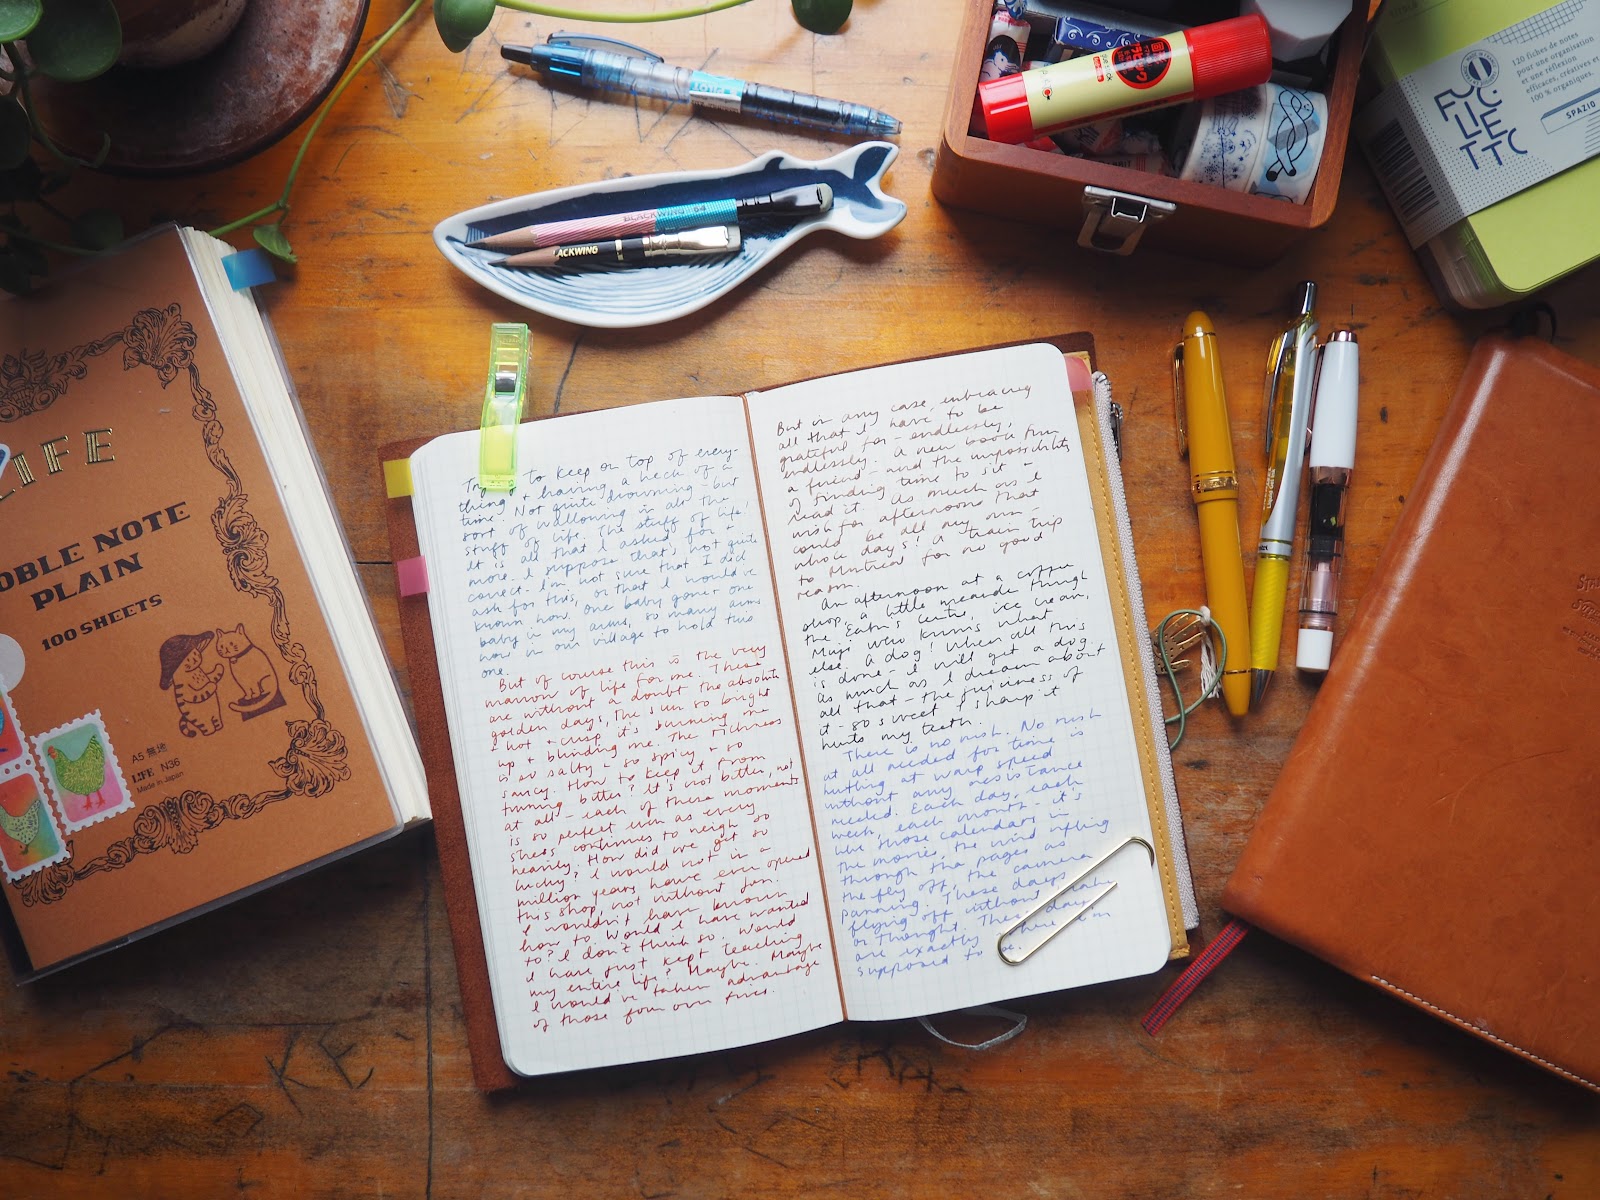 LIFE
NOBLE NOTE
PLAIN
100 SHEETS
A5 無地
LIFE N36
Made in Japan
PILOT
BLACKWING 64
BLACKWING
120 fiches de notes
pour une organisation
et une réflexion
efficaces, créatives et
100 % organiques.
SPAZIO
Trying to keep on top of every-
thing + having a heck of a
time. Not quite drowning - but
sort of wallowing in all the
stuff of life. The stuff of life!
It is all that I asked for +
more. I suppose that's not quite
correct. I'm not sure that I did
ask for this, or that I would've
known how. One baby gone + one
baby in my arms, so many arms
now in our village to hold this
one.
But of course this is the very
marrow of life for me. These
are without a doubt the absolute
golden days, the sun so bright
+ hot + crisp it's burning me
up + blinding me. The richness
is so salty + so spicy + so
saucy. How to keep it from
turning bitter? It's not bitter, not
at all - each of these moments
is so perfect even as every
stress continues to weigh so
heavily. How did we get so
lucky? I would not in a
million years have ever opened
this shop, not without Jon.
I wouldn't have known
how to. Would I have wanted
to? I don't think so. Would
I have just kept teaching
my entire life? Maybe. Maybe
I would've taken advantage
of those four over fives.
But in any case, embracing
all that I have to be
grateful for - endlessly,
endlessly. A new book from
a friend - and the impossibility
of finding time to sit +
read it. As much as I
wish for afternoons that
could be all my own -
whole days! A train trip
to Montreal for no good
reason.
An afternoon at a coffee
shop, a little meander through
the Eaton's Centre, ice cream,
Muji, who knows what
else. A dog! When all this
is done - I will get a dog.
As much as I dream about
all that - the juiciness of
it - so sweet + sharp it
hurts my teeth.
There is no rush. No rush
at all needed for time is
hurtling at warp speed
without any assistance
needed. Each day, each
week, each month - it's
like those calendars in
the movies, the wind rifling
through the pages as
they fly off, the camera
panning. These days
flying off without
or thought. These days
are exactly where I'm
supposed to be.